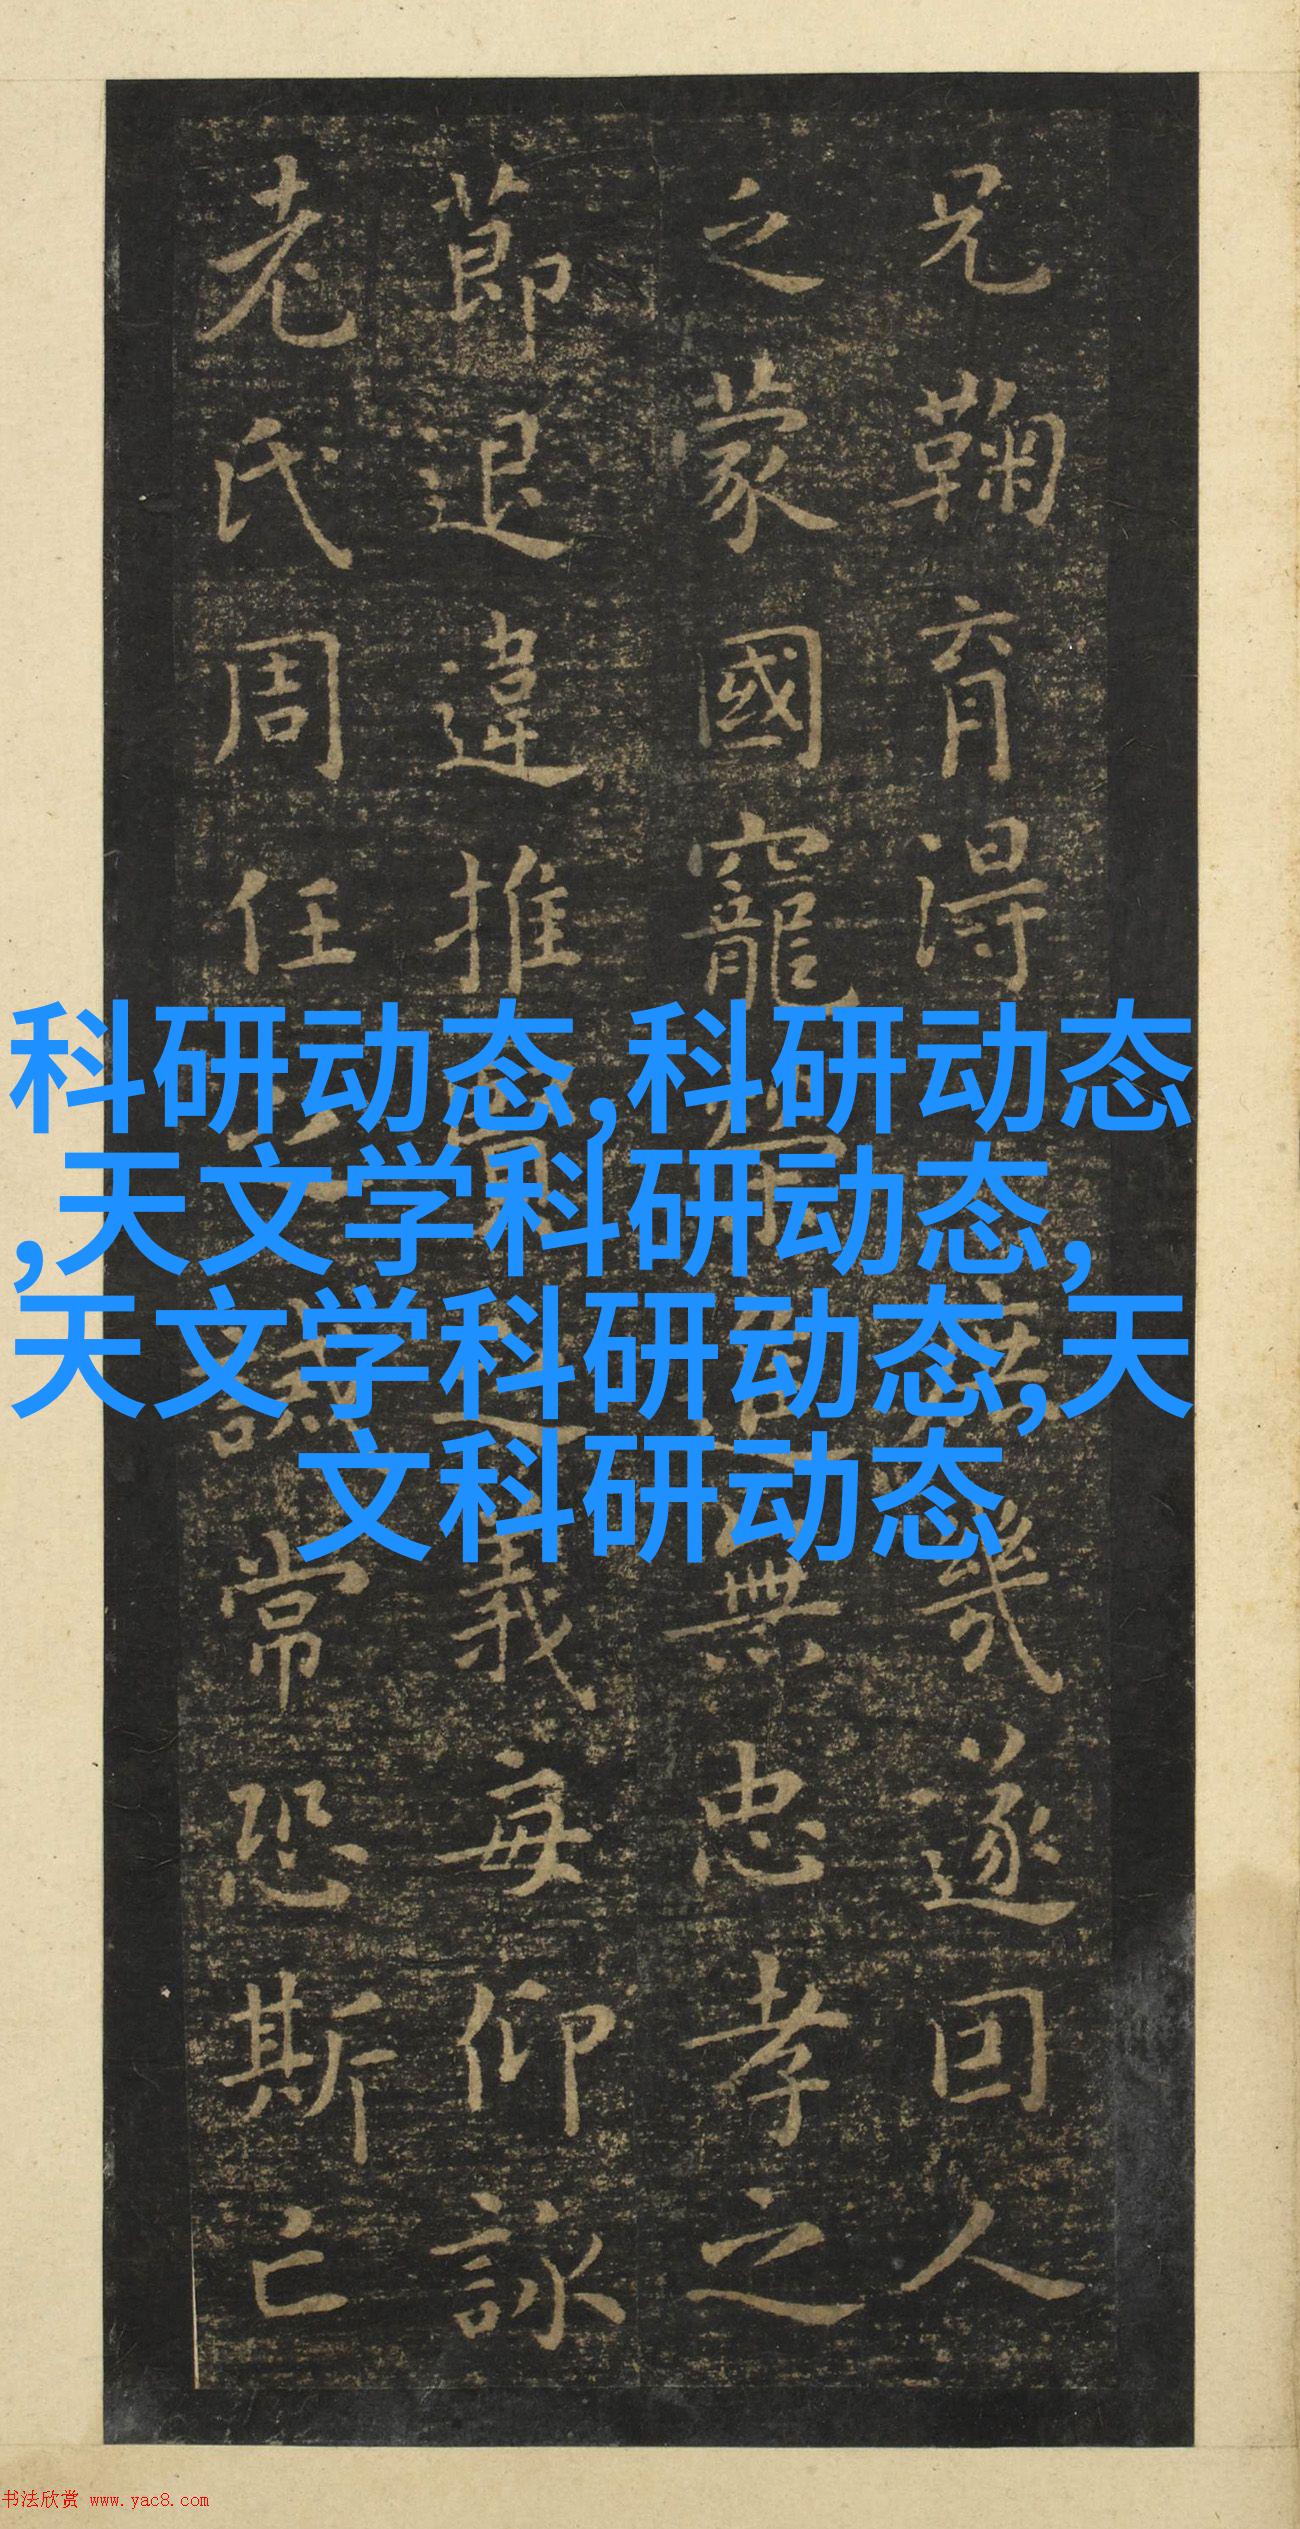 兄鞠育得庶幾遂因人
之蒙國寵榮無忠孝之
莭退違推賢之義每仰詠
老氏周任之誡常恐斯亡
科研动态,科研动态
,天文学科研动态,
天文学科研动态,天
文科研动态
书法欣赏 www.yac8.com